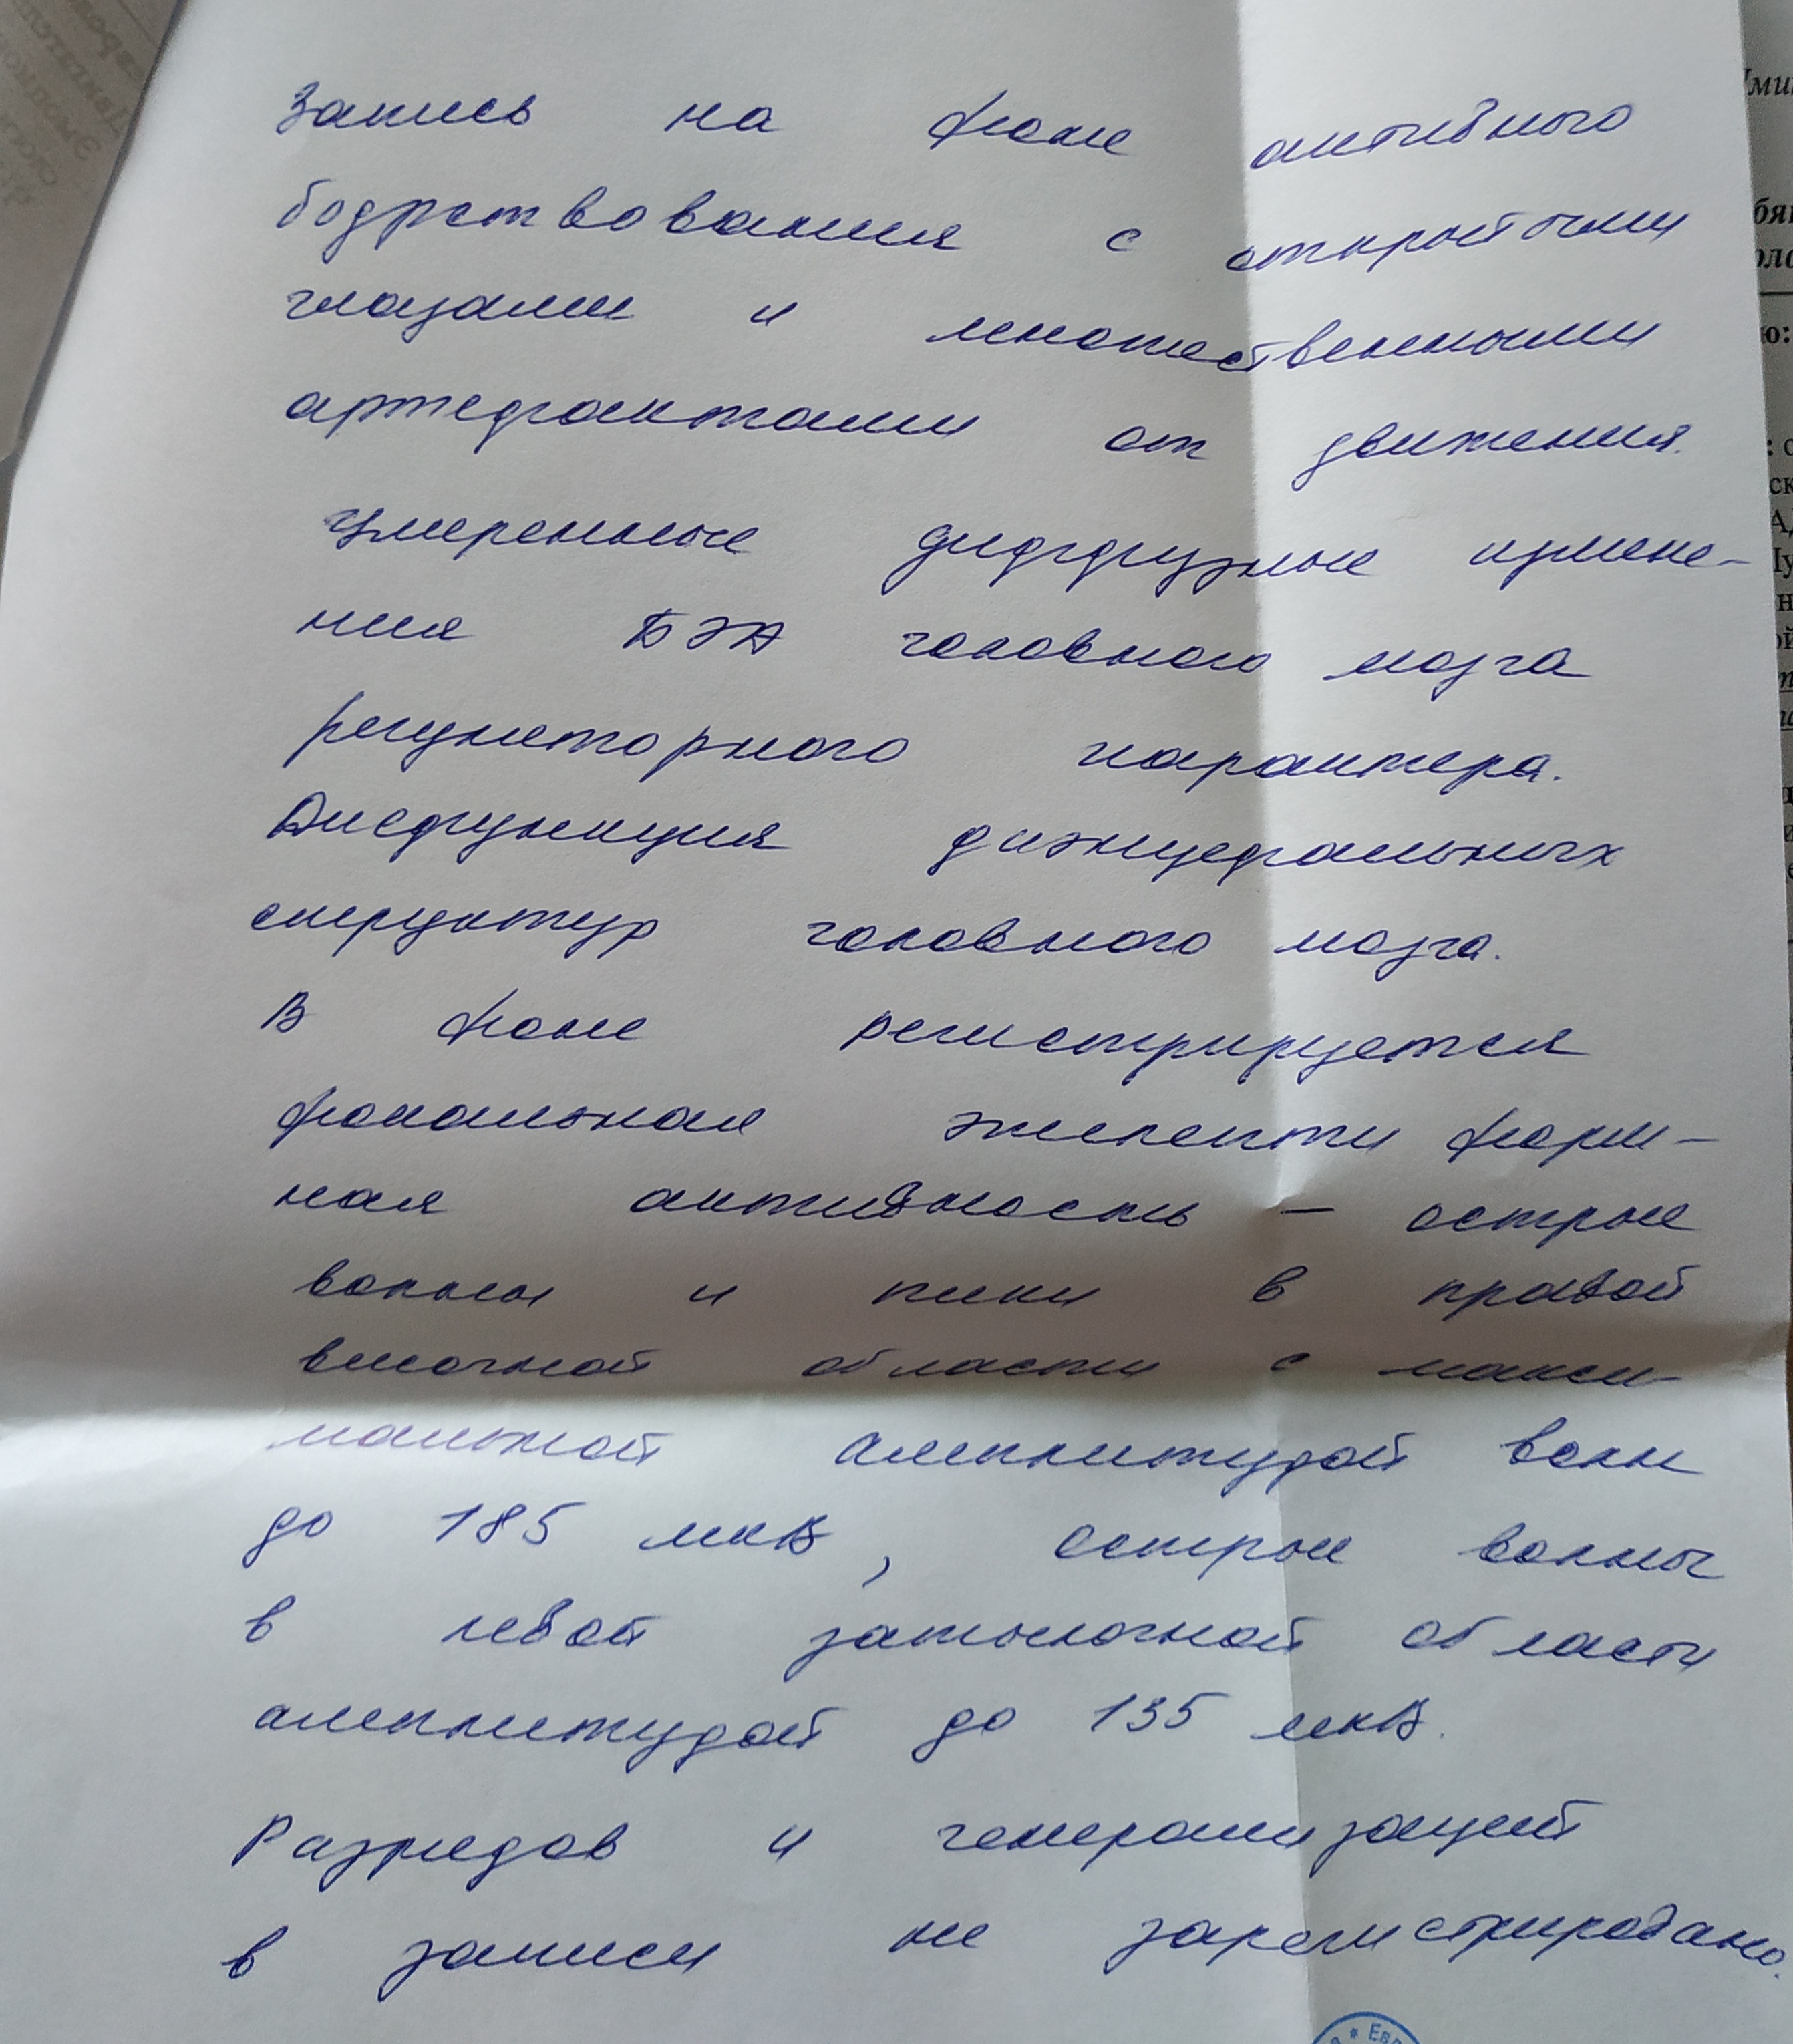 Запись на фоне активного
бодрствования с открытыми
глазами и множественными
артефактами от движения.
Умеренные диффузные измене-
ния БЭА головного мозга
регуляторного характера.
Дисфункция диэнцефальных
структур головного мозга.
В фоне регистрируется
фокальная эпилепти форм-
ная активность – острые
волны и пики в правой
височной области с макси-
мальной амплитудой волн
до 185 мкВ, острые волны
в левой затылочной области
амплитудой до 135 мкВ.
Разрядов и генерализаций
в записи не зарегистрировано.